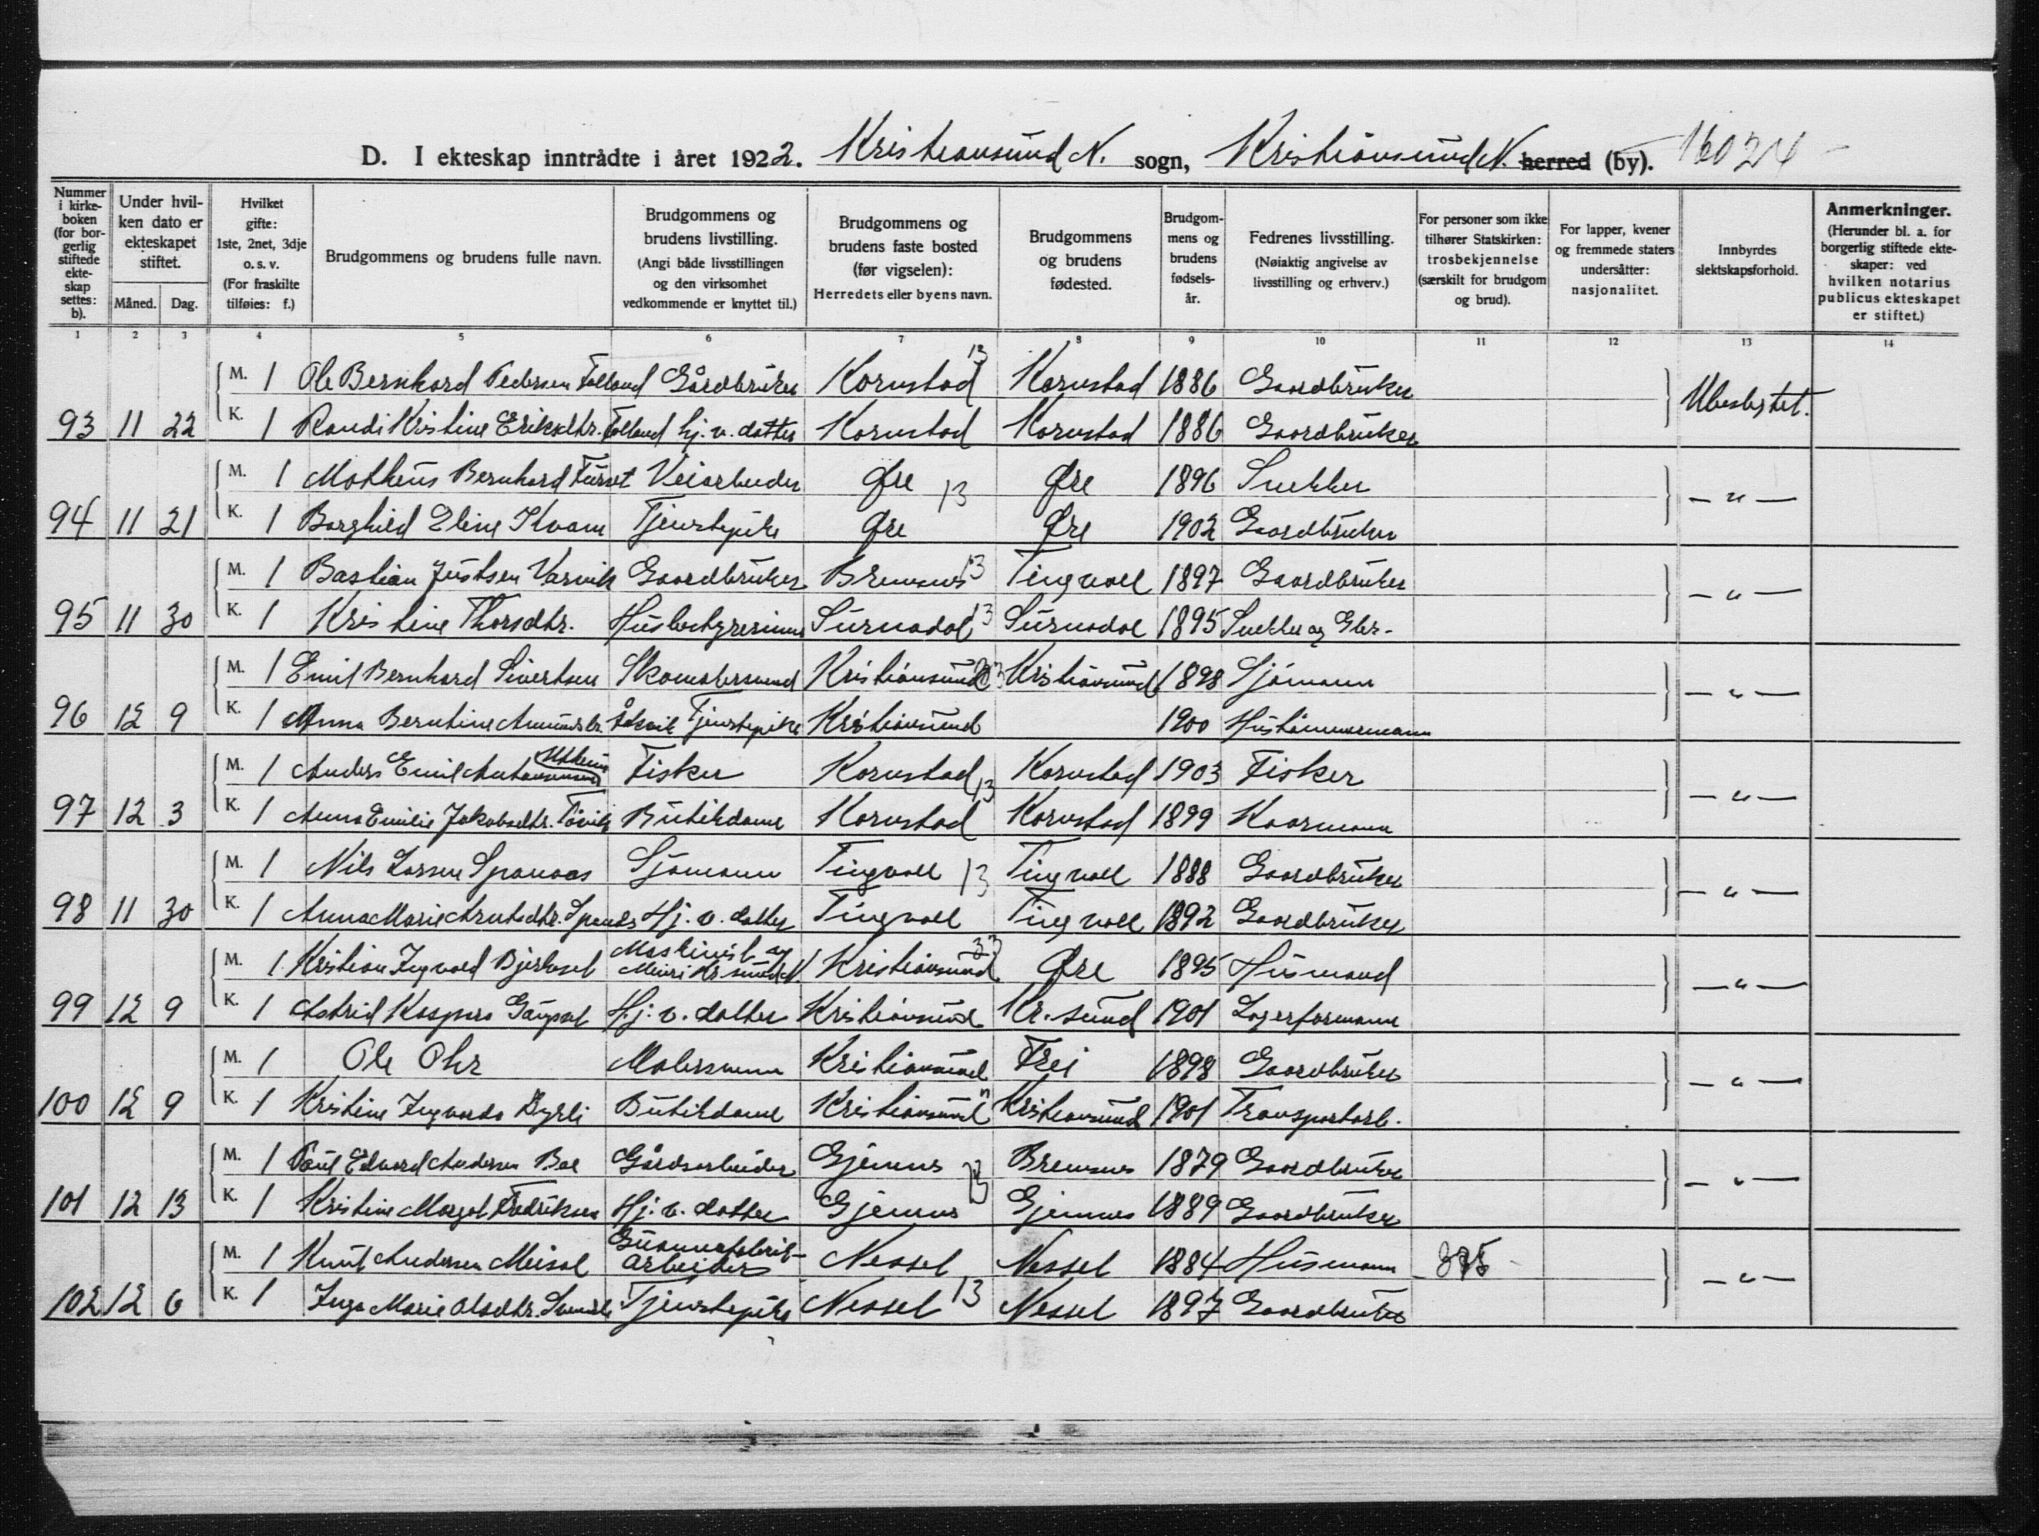 D. I ekteskap inntrådte i året 1922. Kristiansund N. sogn, Kristiansund N. herred (by). 16024
Nummer i kirkeboken (for borgerlig stiftede ekteskap settes: b).
Under hvilken dato er ekteskapet stiftet.
Måned. Dag.
Hvilket gifte: 1ste, 2net, 3dje o. s. v. (For fraskilte tilføies: f.)
Brudgommens og brudens fulle navn.
Brudgommens og brudens livstilling. (Angi både livsstillingen og den virksomhet vedkommende er knyttet til.)
Brudgommens og brudens faste bosted (før vigselen): Herredets eller byens navn.
Brudgommens og brudens fødested.
Brudgommens og brudens fødselsår.
Fedrenes livsstilling. (Nøiaktig angivelse av livsstilling og erhverv.)
For personer som ikke tilhører Statskirken: trosbekjennelse (særskilt for brudgom og brud).
For lapper, kvener og fremmede staters undersåtter: nasjonalitet.
Innbyrdes slektskapsforhold.
Anmerkninger. (Herunder bl. a. for borgerlig stiftede ekteskaper: ved hvilken notarius publicus ekteskapet er stiftet.)
1 2 3 4 5 6 7 8 9 10 11 12 13 14
M. 1 Ole Bernhard Pedersen Folland Gårdbruker Kornstad 13 Kornstad 1886 Gaardbruker Ubeslegtet.
93 11 22 K. 1 Randi Kristine Eriksdtr. Folland hj. v. datter Kornstad Kornstad 1886 Gaardbruker
M. 1 Matheus Bernhard Furset Veiarbeider Øre 13 Øre 1896 Snekker — „ —
94 11 21 K. 1 Borghild Eline Kvam Tjenstepike Øre Øre 1902 Gaardbruker
M. 1 Bastian Justsen Varvik Gaardbruker Bremsnes 13 Tingvoll 1897 Gaardbruker — „ —
95 11 30 K. 1 Kristine Thorsdtr. Husbestyrerinne Surnadal 13 Surnadal 1895 Snekker og Gbr.
M. 1 Emil Bernhard Sivertsen Skomakersvend Kristiansund Kristiansund 1898 Sjömann — „ —
96 12 9 K. 1 Anna Berntine Amundsdtr. Tjenstepike Kristiansund 1900 Hustömmermann
M. 1 Anders Emil Utheim Fisker Kornstad 13 Kornstad 1903 Fisker — „ —
97 12 3 K. 1 Anna Emilie Jakobsdtr. Tövik Butikdame Kornstad Kornstad 1899 Kaarmann
M. 1 Nils Larsen Spanaas Sjömann Tingvoll 13 Tingvoll 1888 Gaardbruker — „ —
98 11 30 K. 1 Anna Marie Arntsdtr. Spanaas Hj. v. datter Tingvoll Tingvoll 1892 Gaardbruker
M. 1 Kristian Ingvald Bjerkset Maskinist og Kr. sund N. Kristiansund 33 Øre 1895 Husmand — „ —
99 12 9 K. 1 Astrid Kaspara Gaupset Hj. v. datter Kristiansund Kr. sund 1901 Lagerformann
M. 1 Ole Ohr Malersvenn Kristiansund Frei 1898 Gaardbruker — „ —
100 12 9 K. 1 Kristine Ingvarda Byrli Butikdame Kristiansund Kristiansund 1901 Transportarb.
M. 1 Paul Edvard Andersen Boe Gårdsarbeider Gjemnes 13 Bremsnes 1879 Gaardbruker — „ —
101 12 13 K. 1 Kristine Margot Fredriksen Hj. v. datter Gjemnes Gjemnes 1889 Gaardbruker
M. 1 Knut Andersen Meisal Guannofabrik-arbeider Nesset Nesset 1884 Husmann — „ —
102 12 6 K. 1 Inga Marie Olsdtr. Tjenstepike Nesset 13 Nesset 1897 Gaardbruker